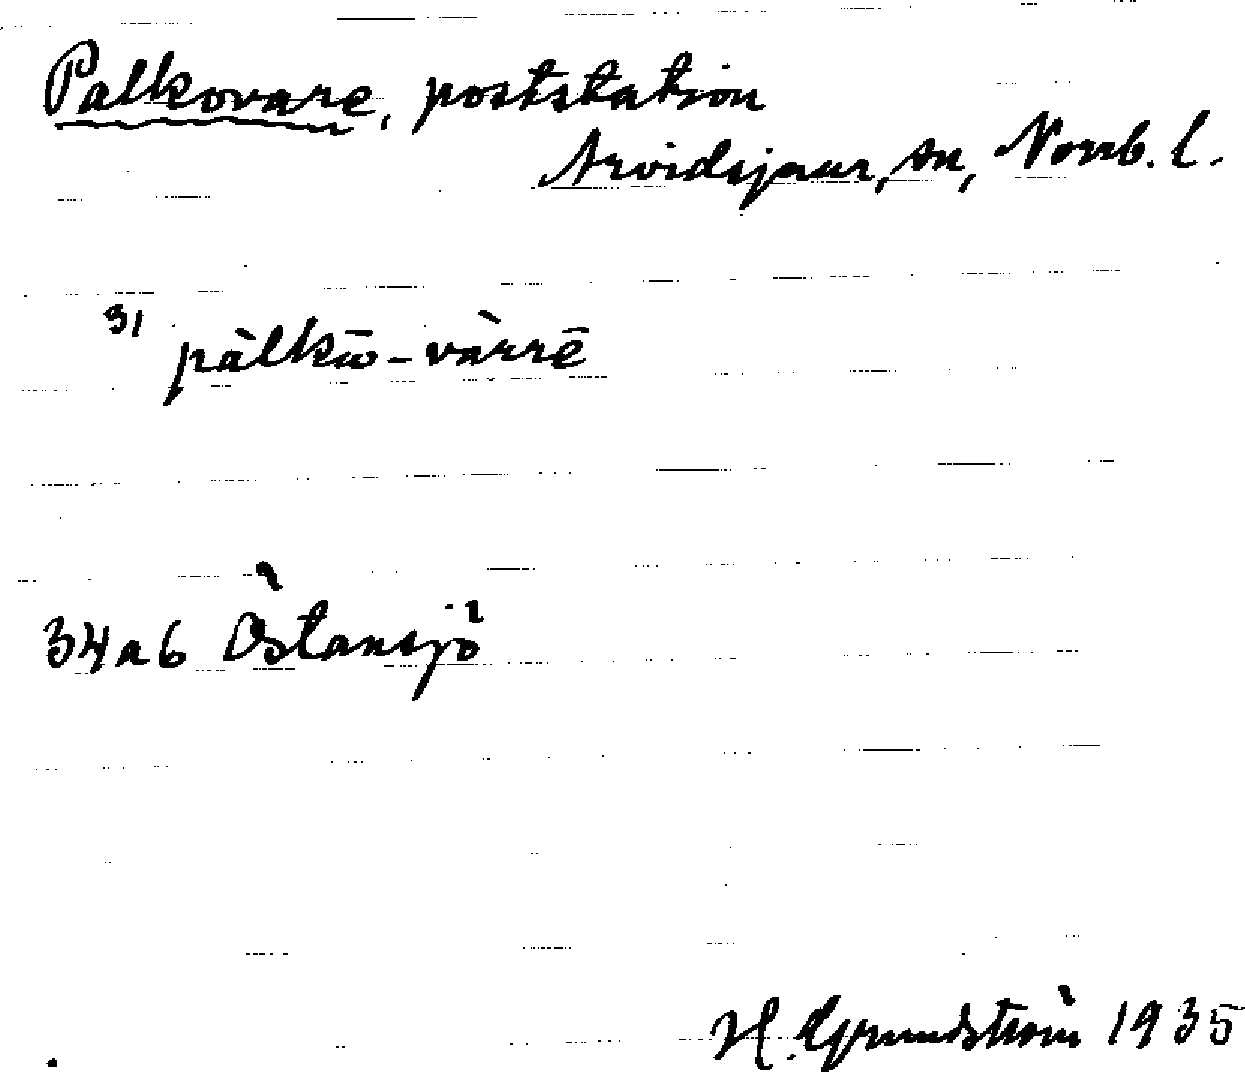 Palkovare, poststation
Arvidsjaur, sn, Norrb. l.
31
pàlkω̄-vàrrē
34a6 Östansjö
H. Grundström 1935